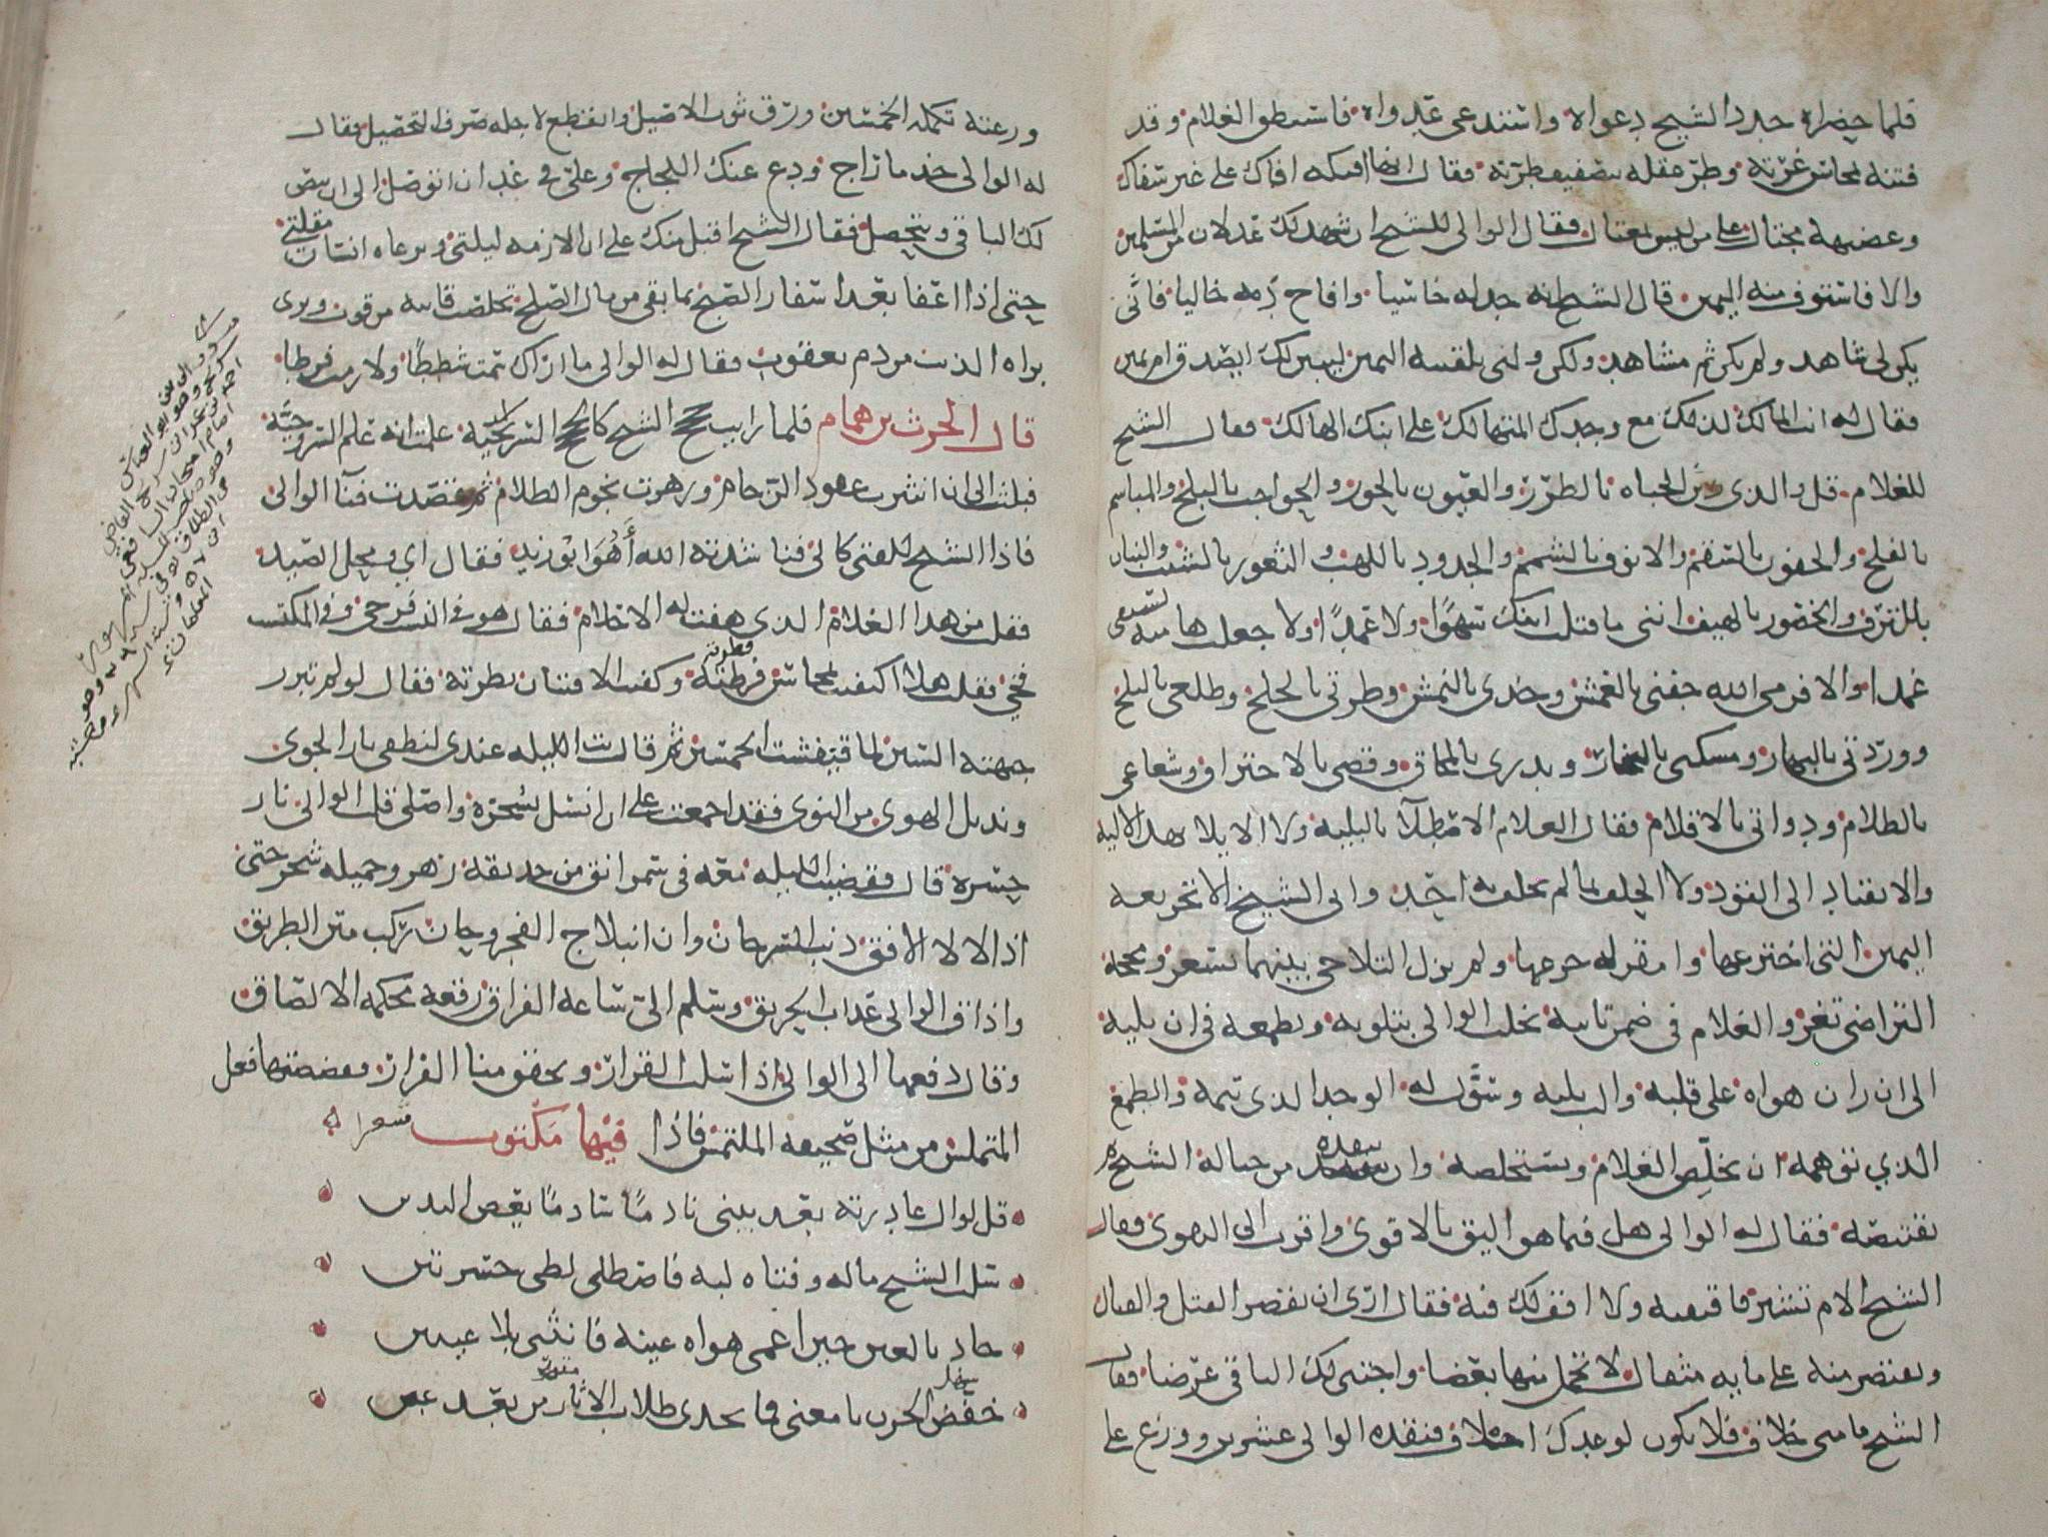 فلما حضراه جدد الشيح دعواه واستدعى عدواه فاستنطق الغلام وقد
فتنه بمحاسن غرته وطر عقله بتصفيف طرته فقال انها افيكه افاك على غير سفاك
وعضيهة محتال على من ليس بمغتال فقال الوالى للشيح ان شهد لك عدلان من المسلمين
والا فاستوف منه اليمين قال الشيح انه جدله خاسيا وافاح دمه خاليا فانى
يكن لى شاهد ولم يكن ثم مشاهد ولكن ولنى تلقينه اليمين ليبين لك ايصدق ام يمين
فقال له انت المالك لذلك مع وجدك المتهالك على ابنك الهالك فقال الشيح
للغلام قل والذى زين الجباه بالطرر والعيون بالحور والحواجب بالبلج والمباسم
بالفلج والجفون بالسقم والانوف بالشمم والخدود باللهب والثغور بالشنب والبنان
بالترف والخصور بالهيف اننى ما قتلت ابنك سهوا ولا عمدا ولا جعلت هامته لسيفى
غمدا والا فرمى الله جفنى بالعمش وخدى بالنمش وطرتى بالجلح وطلعى بالبلح
ووردتى بالبهار ومسكى بالبخار وبدرى بالمحاق وفضتى بالاحتراق وشعاعى
بالظلام ودواتى بالاقلام فقال الغلام الاصطلاء بالبلية ولا الايلا بهذه الالية
والانقياد الى القود ولا الحلف بما لم يحلف به احد وابى الشيخ الا تجريعه
اليمين التى اخترعها وامقر له جرعها ولم يزل التلاحى بينهما يستعر ومحجة
التراضى تعر والغلام فى ضمن تابيه يخلب الوالى بتلويه ويطمعه فى ان يلبيه
الى ان ران هواه على قلبه والب بلبه وسول له الوجد الذى تيمه والطمع
الذي توهمه ان يخلص الغلام ويستخلصه وان ينقذه من حبالة الشيح ثم
يقتنصه فقال له الوالى هل لك فيما هو اليق بالاقوى واقرب الى التقوى فقال
الشيح الام تشير فاقتفيه ولا اقف لك فيه فقال ارى ان تقصر عن القيل والقال
وتقتصر منه على مايه مثقال لاتحمل منها بعضا واجتبى لك الباقى عرضا فقال
الشيح ما منى خلاف فلا يكون لوعدك اخلاف فنقده الوالى عشرين ووزع على
وزعته تكملة الخمسين ورق ثوب الاصيل وانقطع لاجله صوب التحصيل فقال
له الوالى خذ ما راج ودع عنك اللجاج وعلى فى غد ان اتوصل الى ان ينض
لك الباقى ويتحصل فقال الشيح اقبل منك على ان الازمه ليلتى ويرعاه انسان مقلتى
حتى اذا اعفا بعد اسفار الصبح بما بقى من مال الصلح تخلصت قايبه من قوب وبرى
براه الذيب من دم يعقوب فقال له الوالى ما اراك سمت شططا ولا رمت فرطا
قال الحرث بن همام فلما رايت حجج الشيح كالحجج السريجيه علمت انه علم السروجيه
فبلت الى ان انثرت عقود الزحام وزهرت نجوم الظلام ثم قصدت فنا الوالى
فاذا الشيح للفتى كالى فناشدته الله أهُوَ ابو زيد فقال اي ومحل الصيد
فقلت من هذا الغلام الذى هفت له الاحلام فقال هو فى النسب فرخى وفى المكتسب
فخى فقلت هلا اكتفيت بمحاسن فطرته وكفيت الافتتان بطرته فقال لو لم تبرز
جبهته السين لما قنفشت الخمسين ثم قال بت الليله عندى لنطفى نار الجوى
ونديل الهوى من النوى فقد اجمعت على ان انسل بسحرة واصلى قلب الوالى نار
حسرة قال فقضيت الليله معه فى سمر انق من حديقة زهر وخميلة شجر حتى
اذا لالا الافق ذنب السرحان وان انبلاج الفجر وحان ركب متن الطريق
واذاق الوالى عذاب الحريق وسلم الى ساعة الفراق رقعه محكمه الالصاق
وقال ادفعها الى الوالى اذا سلب القرار وتحقق منا الفرار ففضضتها فعل
المتملس من مثل صحيفة الملتمس فاذا فيها مكتوب شعرا
قل لوال غادرته بعد بينى نادما سادما يعض اليدين
سلب الشيح ماله وفتاه لبه فاصطلى لظى حسرتين
جاد بالعين حين اعمى هواه عينه فانثنى بلا عينين
خفض الحزن يا معنى فما يجدى طلاب الاثار من بعد عين